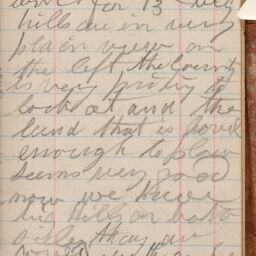 for 13
hills are in very
plain view on
the left the Country
is very pretty to
look at and the
land that is level
enough to plow
seems very good
now we have
big hills on both
sides they are